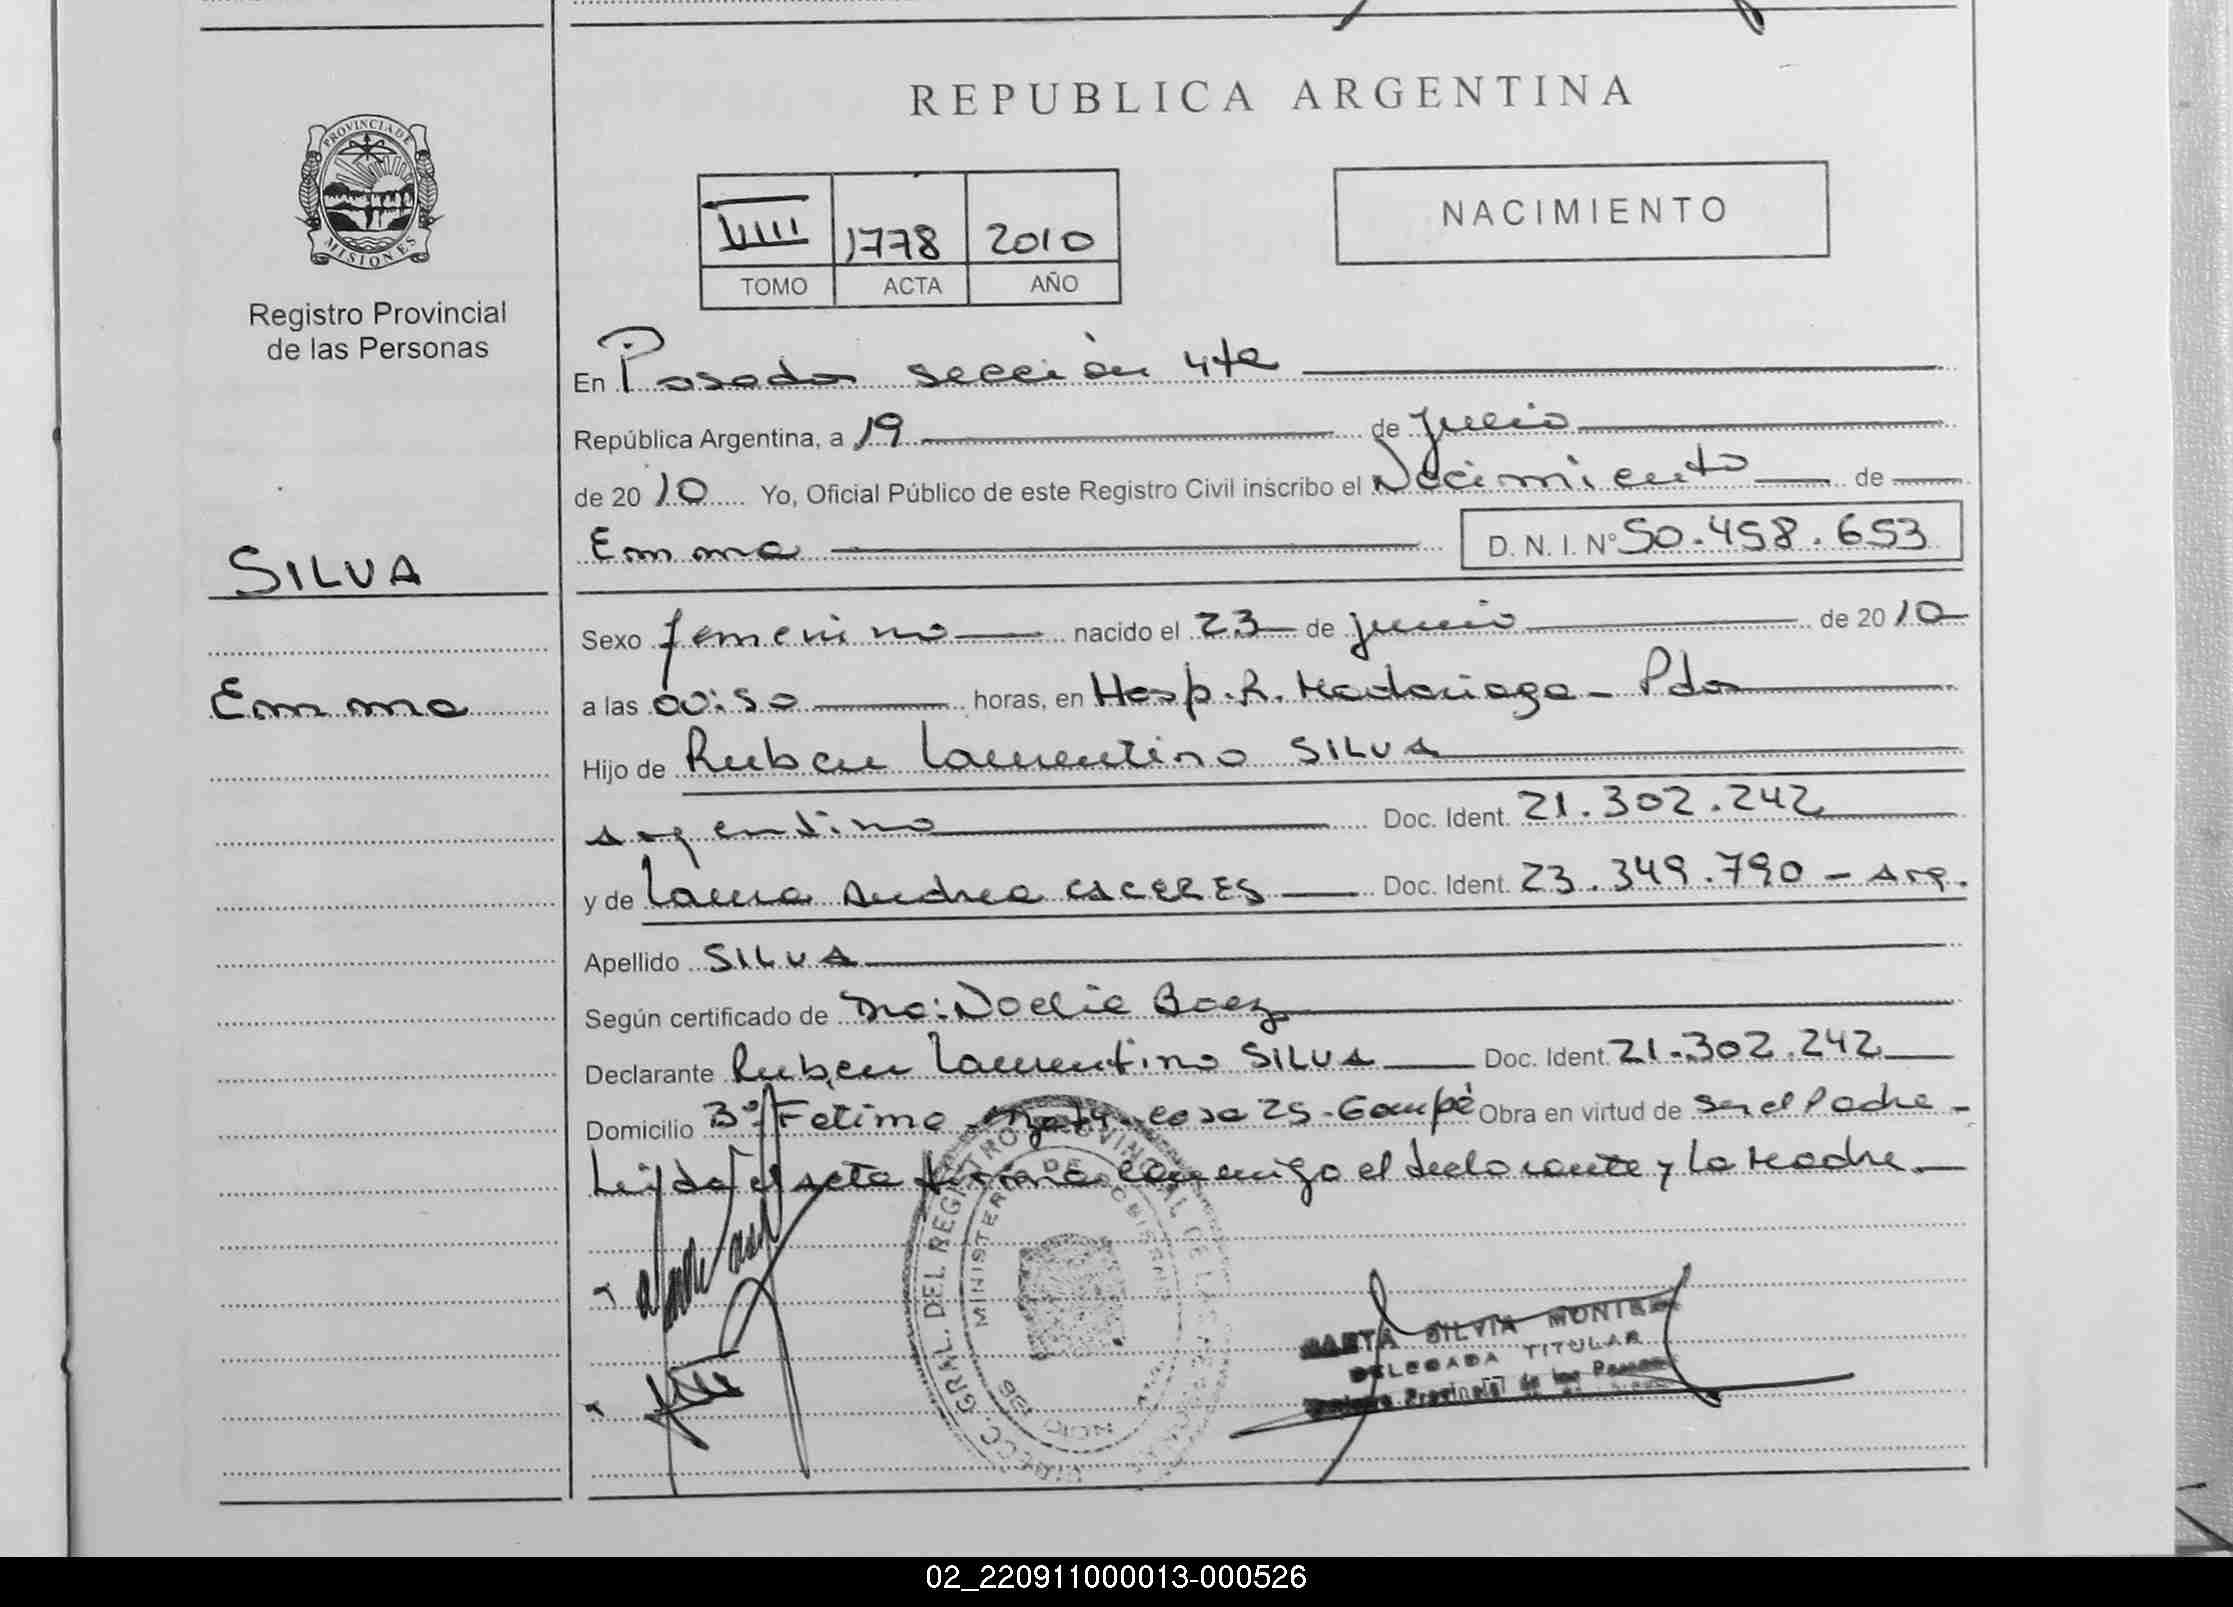 REPUBLICA ARGENTINA
PROVINCIA DE
MISIONES
Registro Provincial
de las Personas
1778 2010
TOMO ACTA AÑO
NACIMIENTO
En Posadas sección 4ta
República Argentina, a 19 de julio
de 2010 Yo, Oficial Público de este Registro Civil inscribo el Nacimiento de
Emma D. N. I. Nº 50.458.653
SILVA
Emma
Sexo femenino nacido el 23 de junio de 2010
a las horas, en Hosp. R. Madariaga - Pdas
Hijo de Ruben Laurentino SILVA
argentino Doc. Ident. 21.302.242
y de Laura Andrea CACERES Doc. Ident. 23.349.790 - Arg.
Apellido SILVA
Según certificado de Dra: Noelia Baez
Declarante Ruben Laurentino SILVA Doc. Ident. 21.302.242
Domicilio Bº Fátima casa 25 - Garupá Obra en virtud de ser el Padre -
Leída el acta firma conmigo el declarante y la Madre.
DIRECC. GRAL. DEL REGISTRO PROVINCIAL DE LAS PERSONAS
MINISTERIO DE GOBIERNO
SILVIA
DELEGADA TITULAR
Provincial de las
02_220911000013-000526